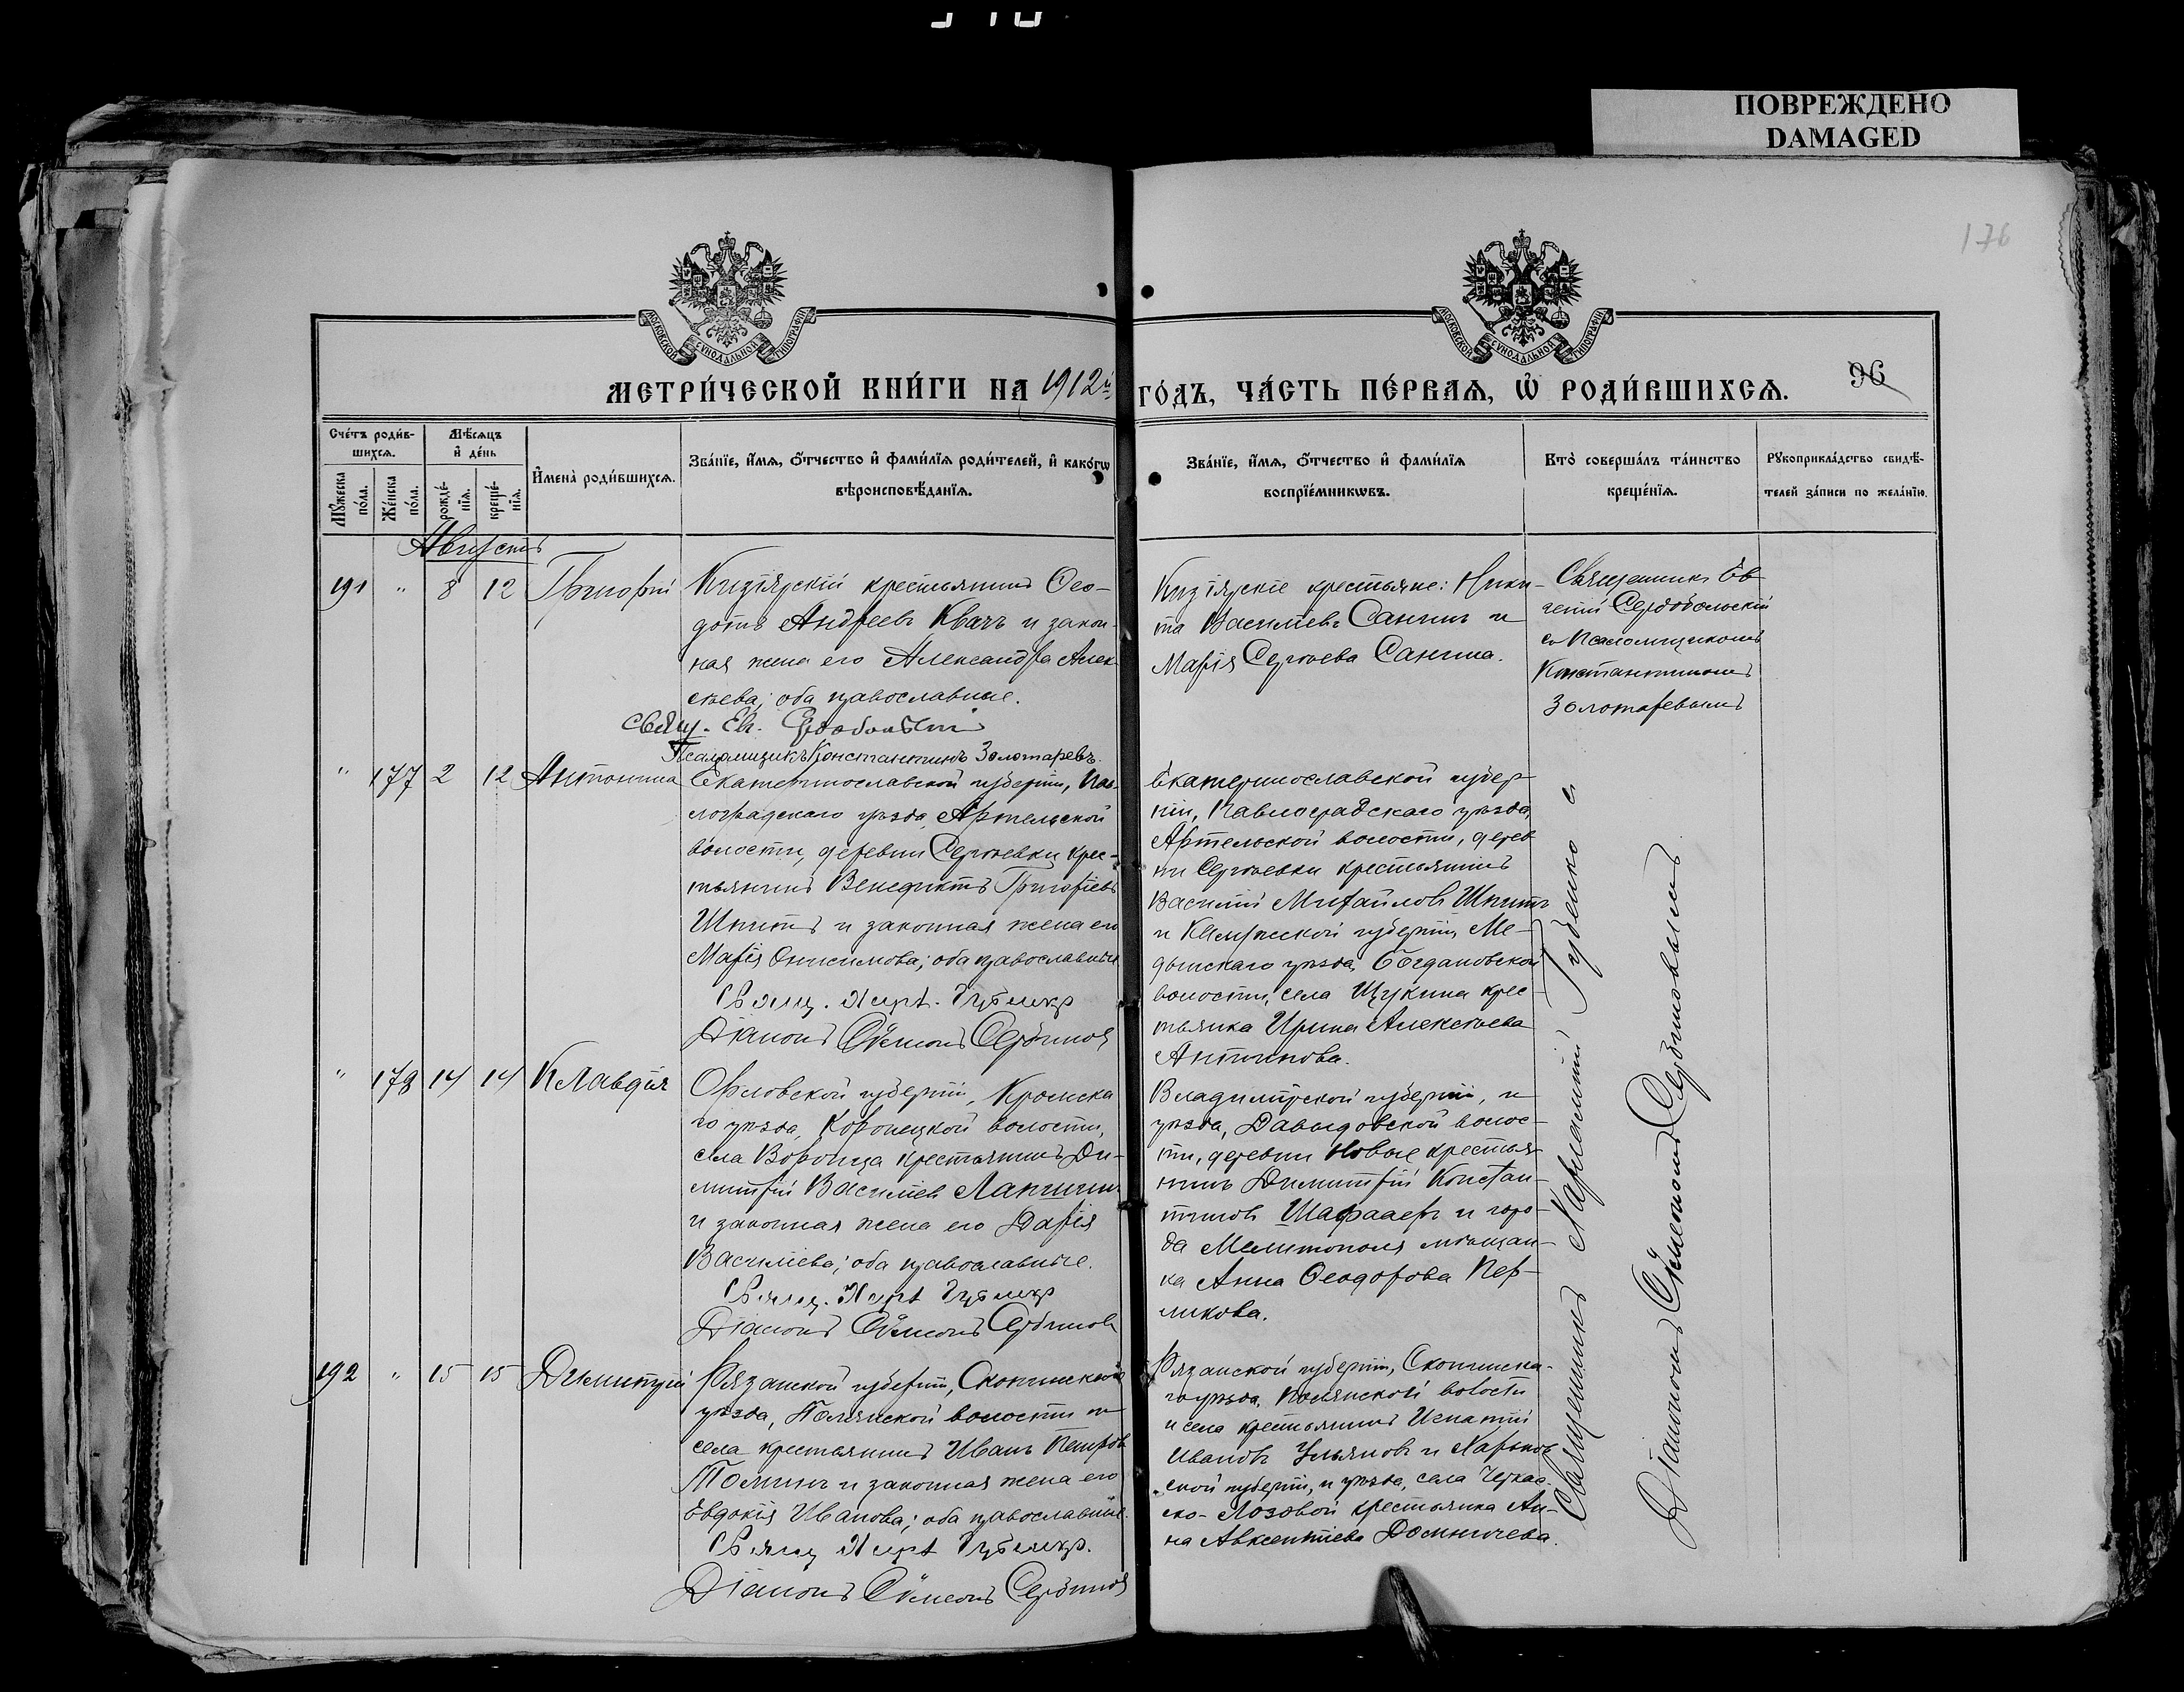 ПОВРЕЖДЕНО
DAMAGED
176
МОСКОВСКОЙ СѴНОДАЛЬНОЙ ТИПОГРАФІИ
МОСКОВСКОЙ СѴНОДАЛЬНОЙ ТИПОГРАФІИ
МЕТРИ́ЧЕСКОЙ КНИ́ГИ НА 1912й
ГО́ДЪ, ЧА́СТЬ ПЕ́РВАѦ, Ѡ҆ РОДИ́ВШИХСѦ.
96
Сче́тъ роди́в-
шихсѧ.
Мѣ́сѧцъ
и҆ де́нь
Мꙋ́жеска
по́ла.
Же́нска
по́ла.
рожде́-
нїѧ.
креще́-
нїѧ.
И҆мена̀ роди́вшихсѧ.
Зва́нїе, и҆́мѧ, ѻ҆́тчество и҆ фами́лїѧ роди́телей, и҆ како́гѡ
вѣроисповѣ́данїѧ.
Зва́нїе, и҆́мѧ, ѻ҆́тчество и҆ фами́лїѧ
воспрїе́мникѡвъ.
Кто̀ соверша́лъ та́инство
креще́нїѧ.
Рꙋкоприкла́дство свидѣ́-
телей за́писи по жела́нїю.
Августъ
191 " 8 12 Григорій
Кизіярскій крестьянинъ Ѳео-
дотъ Андреевъ Квачъ и закон-
ная жена его Александра Алек-
сѣева; оба православные.
Свящ. Ев. Сердобольскій
Псаломщикъ Константинъ Золотаревъ.
Кизіярскіе крестьяне: Ники-
та Василіевъ Санинъ и
Марія Сергѣева Санина.
Священникъ Ев-
геній Сердобольскій
съ Псаломщикомъ
Константиномъ
Золотаревымъ
" 177 2 12 Антонина
Екатеринославской губерніи, Пав-
лоградскаго уѣзда, Артельской
волости, деревни Сергѣевки крес-
тьянинъ Венедиктъ Григоріевъ
Шпитъ и законная жена его
Марія Онисимова; оба православные
Свящ. Харл. Губенко
Діаконъ Сѵмеонъ Сербиновъ
Екатеринославской губер-
ніи, Павлоградскаго уѣзда,
Артельской волости, дерев-
ни Сергѣевки крестьянинъ
Василій Михайловъ Шпитъ
и Калужской губерніи, Ме-
дынскаго уѣзда, Богдановской
волости, села Щукина крес-
тьянка Ирина Алексѣева
Антипова.
" 178 14 14 Клавдія
Орловской губерніи, Кромска
го уѣзда, Коровецкой волости,
села Воронца крестьянинъ Ди-
митрій Василіевъ Лапичинъ
и законная жена его Дарія
Василіева; оба православные.
Свящ. Харл. Губенко
Діаконъ Сѵмеонъ Сербиновъ
Владимірской губерніи, и
уѣзда, Давыдовской волос-
ти, деревни Новые крестья-
нинъ Димитрій Констан-
тиновъ и горо-
да Мелитополя мѣщан-
ка Анна Ѳеодорова Пер-
ликова.
192 " 15 15 Димитрій
Рязанской губерніи, Скопинскаго
уѣзда, Полянской волости и
села крестьянинъ Иванъ Петровъ
Томинъ и законная жена его
Евдокія Иванова; оба православные.
Свящ. Харл. Губенко.
Діаконъ Сѵмеонъ Сербиновъ
Рязанской губерніи, Скопинска-
го уѣзда, Полянской волости
и села крестьянинъ Игнатій
Ивановъ Ульяновъ и Харьков-
ской губерніи, и уѣзда, села Черкас-
ско-Лозовой крестьянка Ан-
на Авксентіева
Священникъ Харлампій Губенко съ
Діакономъ Сѵмеономъ Сербиновымъ